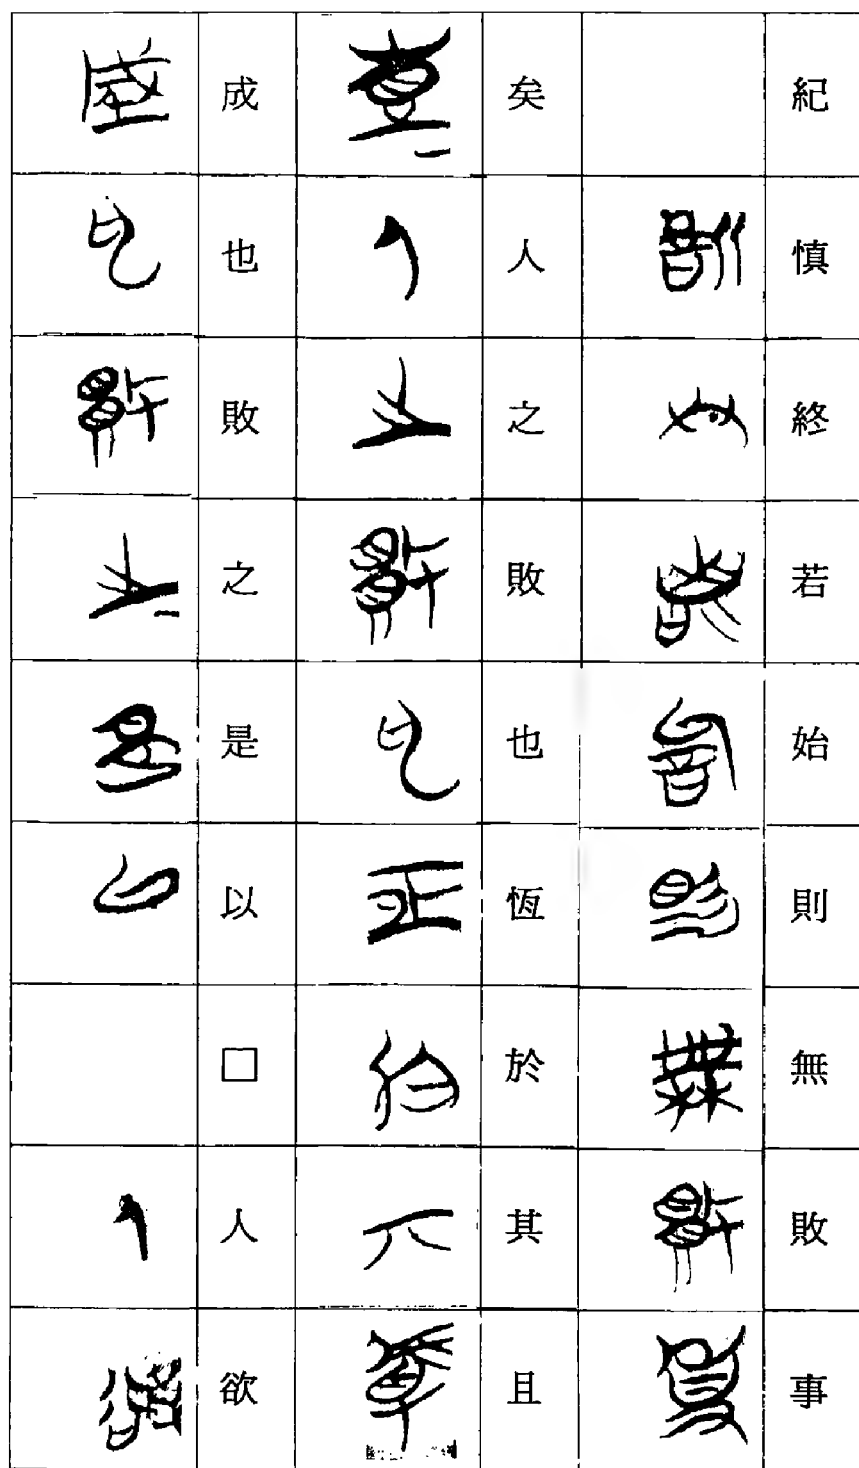 紀慎終若始則無敗事
矣人之敗也恆於其且
成也敗之是以□人欲